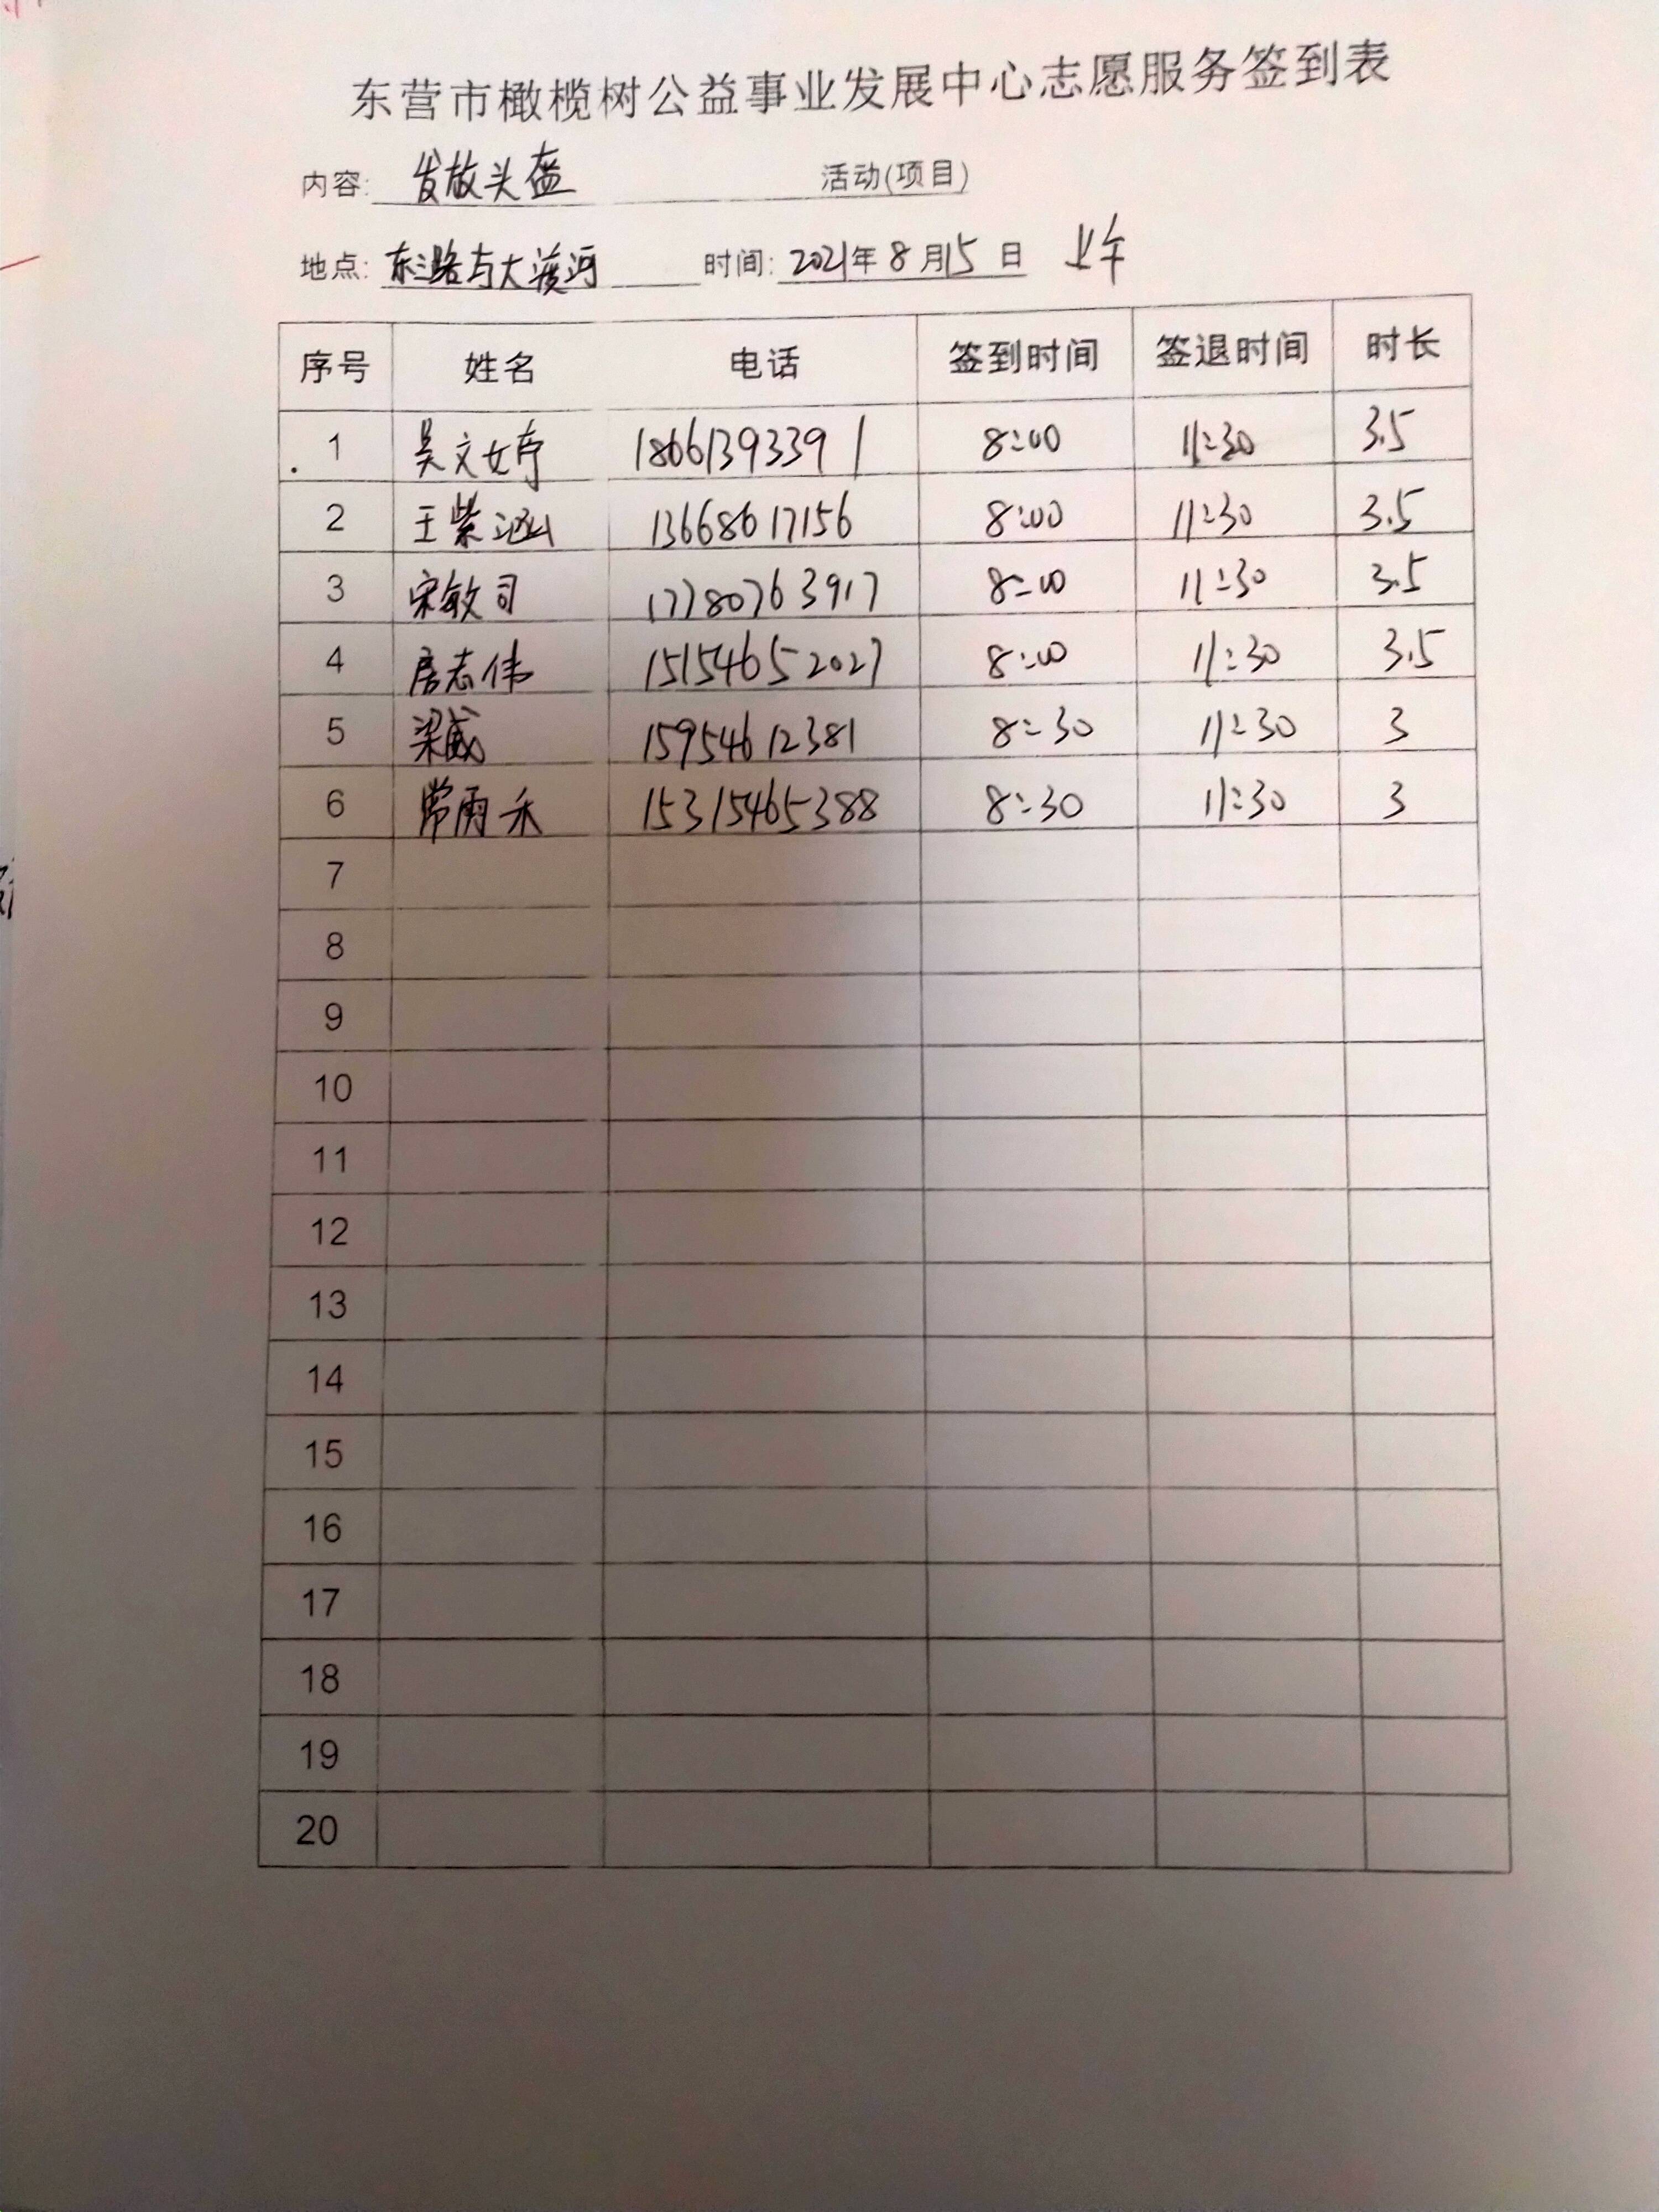 东营市橄榄树公益事业发展中心志愿服务签到表
内容: 发放头盔 活动(项目)
地点: 东三路与大渡河 时间: 2021年8月15日 上午
序号 姓名 电话 签到时间 签退时间 时长
1 吴文婷 18661393391 8:00 11:30 3.5
2 王紫涵 13668617156 8:00 11:30 3.5
3 宋敏司 17780763917 8:00 11:30 3.5
4 居志伟 15154652027 8:00 11:30 3.5
5 梁威 15954612381 8:30 11:30 3
6 常雨禾 15315465388 8:30 11:30 3
7
8
9
10
11
12
13
14
15
16
17
18
19
20